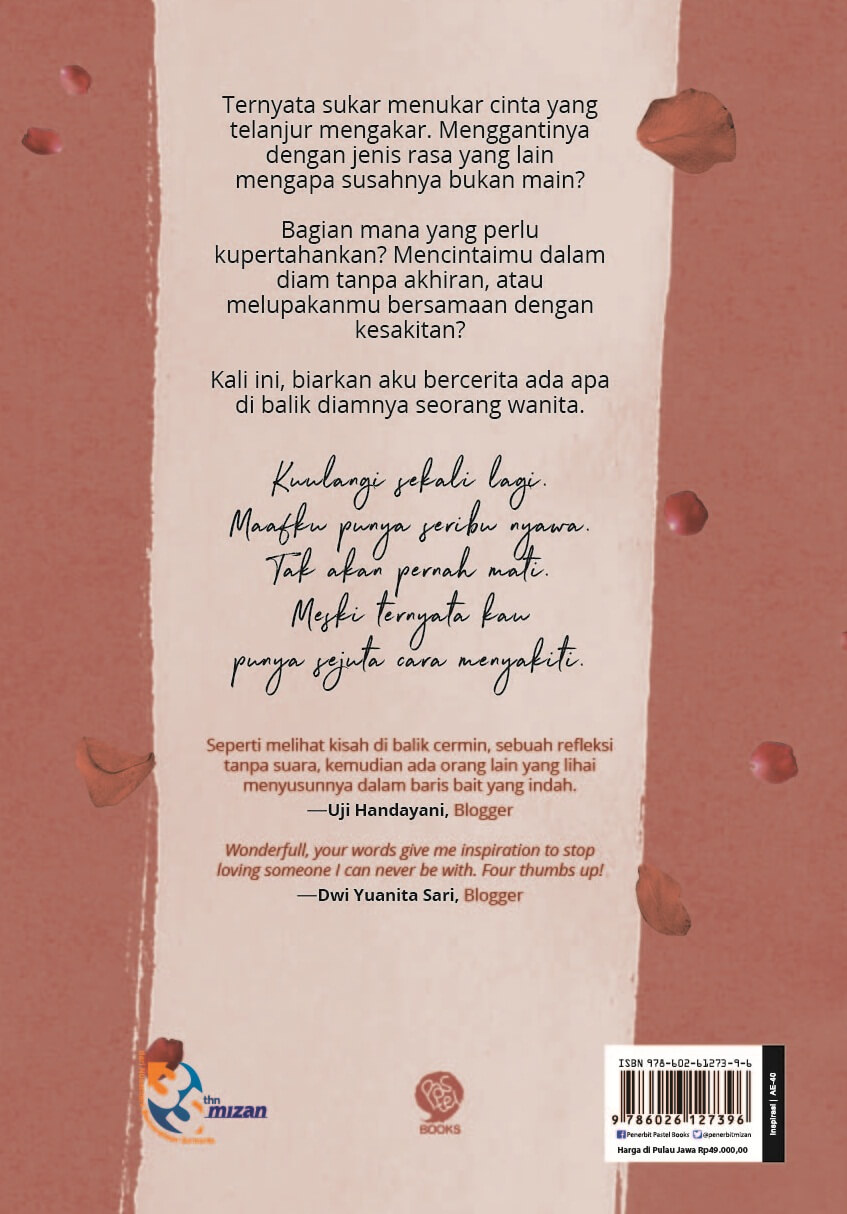 Ternyata sukar menukar cinta yang
telanjur mengakar. Menggantinya
dengan jenis rasa yang lain
mengapa susahnya bukan main?
Bagian mana yang perlu
kupertahankan? Mencintaimu dalam
diam tanpa akhiran, atau
melupakanmu bersamaan dengan
kesakitan?
Kali ini, biarkan aku bercerita ada apa
di balik diamnya seorang wanita.
Kuulangi sekali lagi.
Maafku punya seribu nyawa.
Tak akan pernah mati.
Meski ternyata kau
punya sejuta cara menyakiti.
Seperti melihat kisah di balik cermin, sebuah refleksi
tanpa suara, kemudian ada orang lain yang lihai
menyusunnya dalam baris bait yang indah.
—Uji Handayani, Blogger
Wonderfull, your words give me inspiration to stop
loving someone I can never be with. Four thumbs up!
—Dwi Yuanita Sari, Blogger
thn
mizan
PASTEL
BOOKS
ISBN 978-602-61273-9-6
9 786026 127396
Penerbit Pastel Books @penerbitmizan
Harga di Pulau Jawa Rp49.000,00
Inspirasi | AE-40